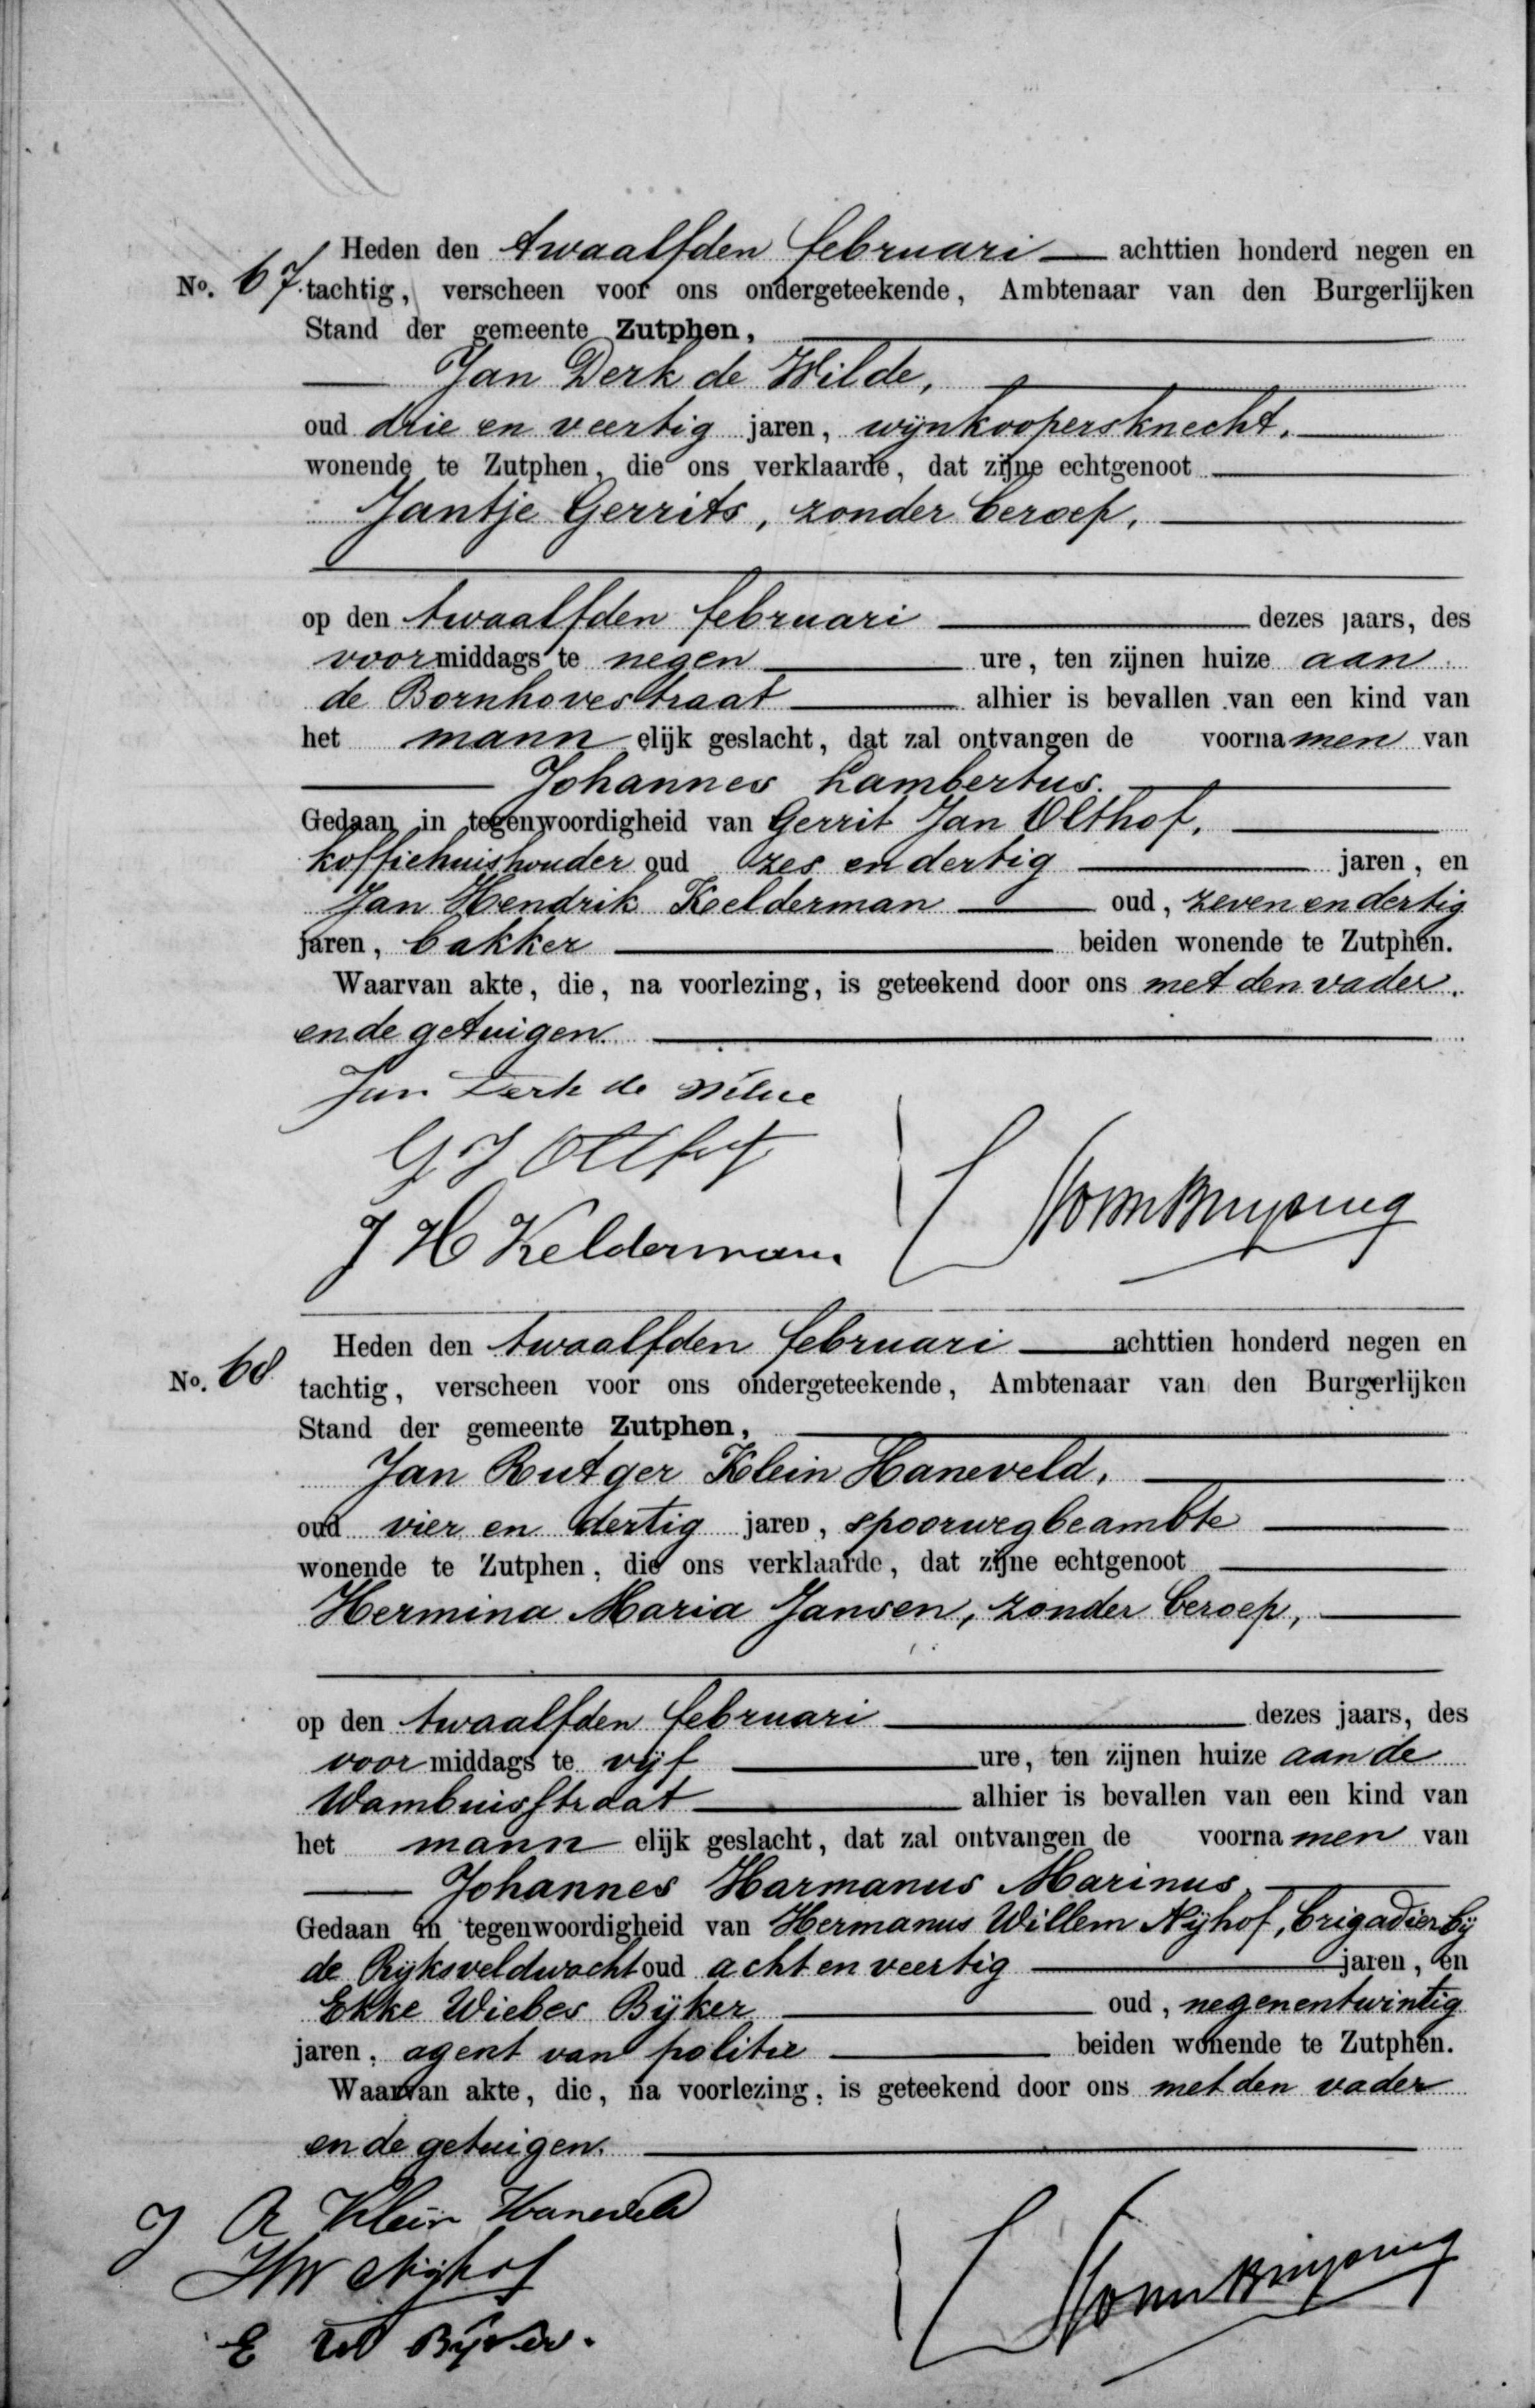 Heden den twaalfden februari achttien honderd negen en
No. 67. tachtig, verscheen voor ons ondergeteekende, Ambtenaar van den Burgerlijken
Stand der gemeente Zutphen,
Jan Derk de Wilde,
oud drie en veertig jaren, wijnkoopersknecht,
wonende te Zutphen, die ons verklaarde, dat zijne echtgenoot
Jantje Gerrits, zonder beroep,
op den twaalfden februari dezes jaars, des
voormiddags te negen ure, ten zijnen huize aan
de Bornhovestraat alhier is bevallen van een kind van
het mannelijk geslacht, dat zal ontvangen de voornamen van
Johannes Lambertus.
Gedaan in tegenwoordigheid van Gerrit Jan Olthof,
koffiehuishouder oud zes en dertig jaren, en
Jan Hendrik Kelderman oud, zeven en dertig
jaren, bakker beiden wonende te Zutphen.
Waarvan akte, die, na voorlezing, is geteekend door ons met den vader
en de getuigen.
Jan Derk de Wilde
G J Olthof
J H Kelderman
Heden den twaalfden februari achttien honderd negen en
No. 68 tachtig, verscheen voor ons ondergeteekende, Ambtenaar van den Burgerlijken
Stand der gemeente Zutphen,
Jan Rutger Klein Haneveld,
oud vier en dertig jaren, spoorwegbeambte
wonende te Zutphen, die ons verklaarde, dat zijne echtgenoot
Hermina Maria Jansen, zonder beroep,
op den twaalfden februari dezes jaars, des
voormiddags te vijf ure, ten zijnen huize aan de
Wambuisstraat alhier is bevallen van een kind van
het mannelijk geslacht, dat zal ontvangen de voornamen van
Johannes Harmanus Marinus,
Gedaan in tegenwoordigheid van Hermanus Willem Nijhof, brigadier bij
de Rijksveldwacht oud acht en veertig jaren, en
Ekke Wiebes Bijker oud, negenentwintig
jaren, agent van politie beiden wonende te Zutphen.
Waarvan akte, die, na voorlezing, is geteekend door ons met den vader
en de getuigen.
J R Klein Haneveld
HW Nijhof
E W Bijker.